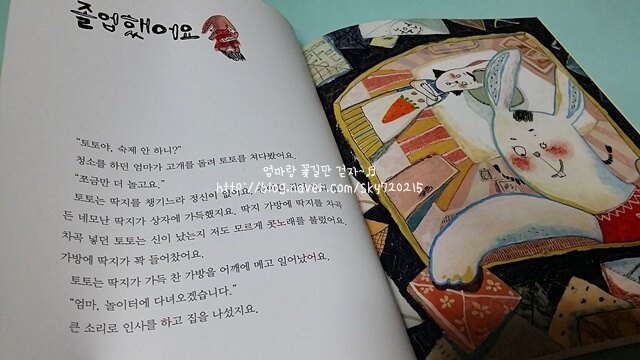 졸업했어요
"토토야, 숙제 안 하니?"
청소를 하던 엄마가 고개를 돌려 토토를 쳐다봤어요.
엄마랑 꽃길만 걷자~♬
"쪼금만 더 놀고요."
http://blog.naver.com/sky720215
토토는 딱지를 챙기느라 정신이 없어요.
든 네모난 딱지가 상자에 가득했지요. 딱지 가방에 딱지를 차곡
차곡 넣던 토토는 신이 났는지 저도 모르게 콧노래를 불렀어요.
가방에 딱지가 꽉 들어찼어요.
토토는 딱지가 가득 찬 가방을 어깨에 메고 일어났어요.
"엄마, 놀이터에 다녀오겠습니다."
큰 소리로 인사를 하고 집을 나섰지요.